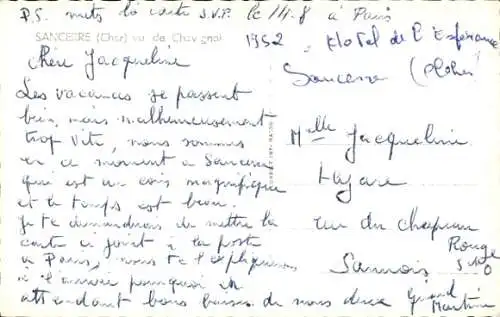 P.S. mets la carte S.V.P. le 111.8 à Paris
SANCERRE (Cher) vu de Chavignol
1952
Hotel de l'Esperance
Sancerre (Cher)
Chère Jacqueline
Les vacances se passent
bien, mais malheureusement
trop vite, nous sommes
en ce moment a Sancerre
qui est un coin magnifique
et le temps est beau.
Je te demanderai de mettre la
carte ci joint à la poste
à Paris, nous te l'expliquerons
à l'arrivée pourquoi en
attendant bons baisers de nous deux
Melle Jacqueline
Lazare
rue du chapeau
Rouge
Sannois
S&O